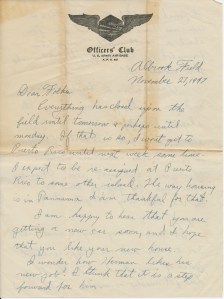 Officers' Club
Albrook Field
November 27, 1947
Dear Folks
Everything has closed upon the
field until tomorrow & perhaps until
monday. If that is so, I wont get to
Puerto Rico until next week some time.
I expect to be re-assigned at Puerto
Rico to some other island. No way housing
in Panama & am thankful for that.
I am happy to hear that you are
getting a new car soon, and I hope
that you like your new house.
I wonder how Herman likes his
new job? I think that it is a step
forward for him